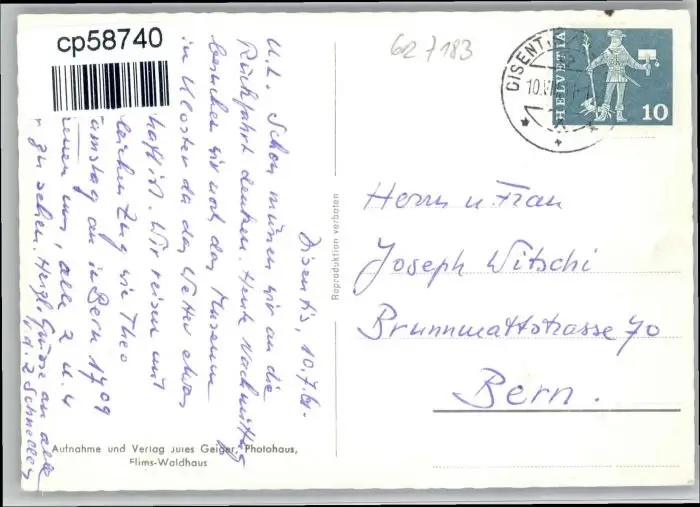 cp58740
62/183
DISENTI
10.VI
HELVETIA
10
Disentis, 10.7.61.
U. L. Schon müssen wir an die
Rückfahrt denken. Heute Nachmittag
besuchen wir noch das Museum
im Kloster da das Wetter etwas
haft ist. Wir reisen mit
leichen Zug wie Theo
amstag an in Bern 1709
uns, alle 2 u. 4
zu sehen. Herzl. Grüsse an alle
v. d. 2 Schnelley
Herrn u. Frau
Joseph Witschi
Brunnmattstrasse 70
Bern.
Reproduktion verboten
Aufnahme und Verlag Jules Geiger, Photohaus,
Flims-Waldhaus